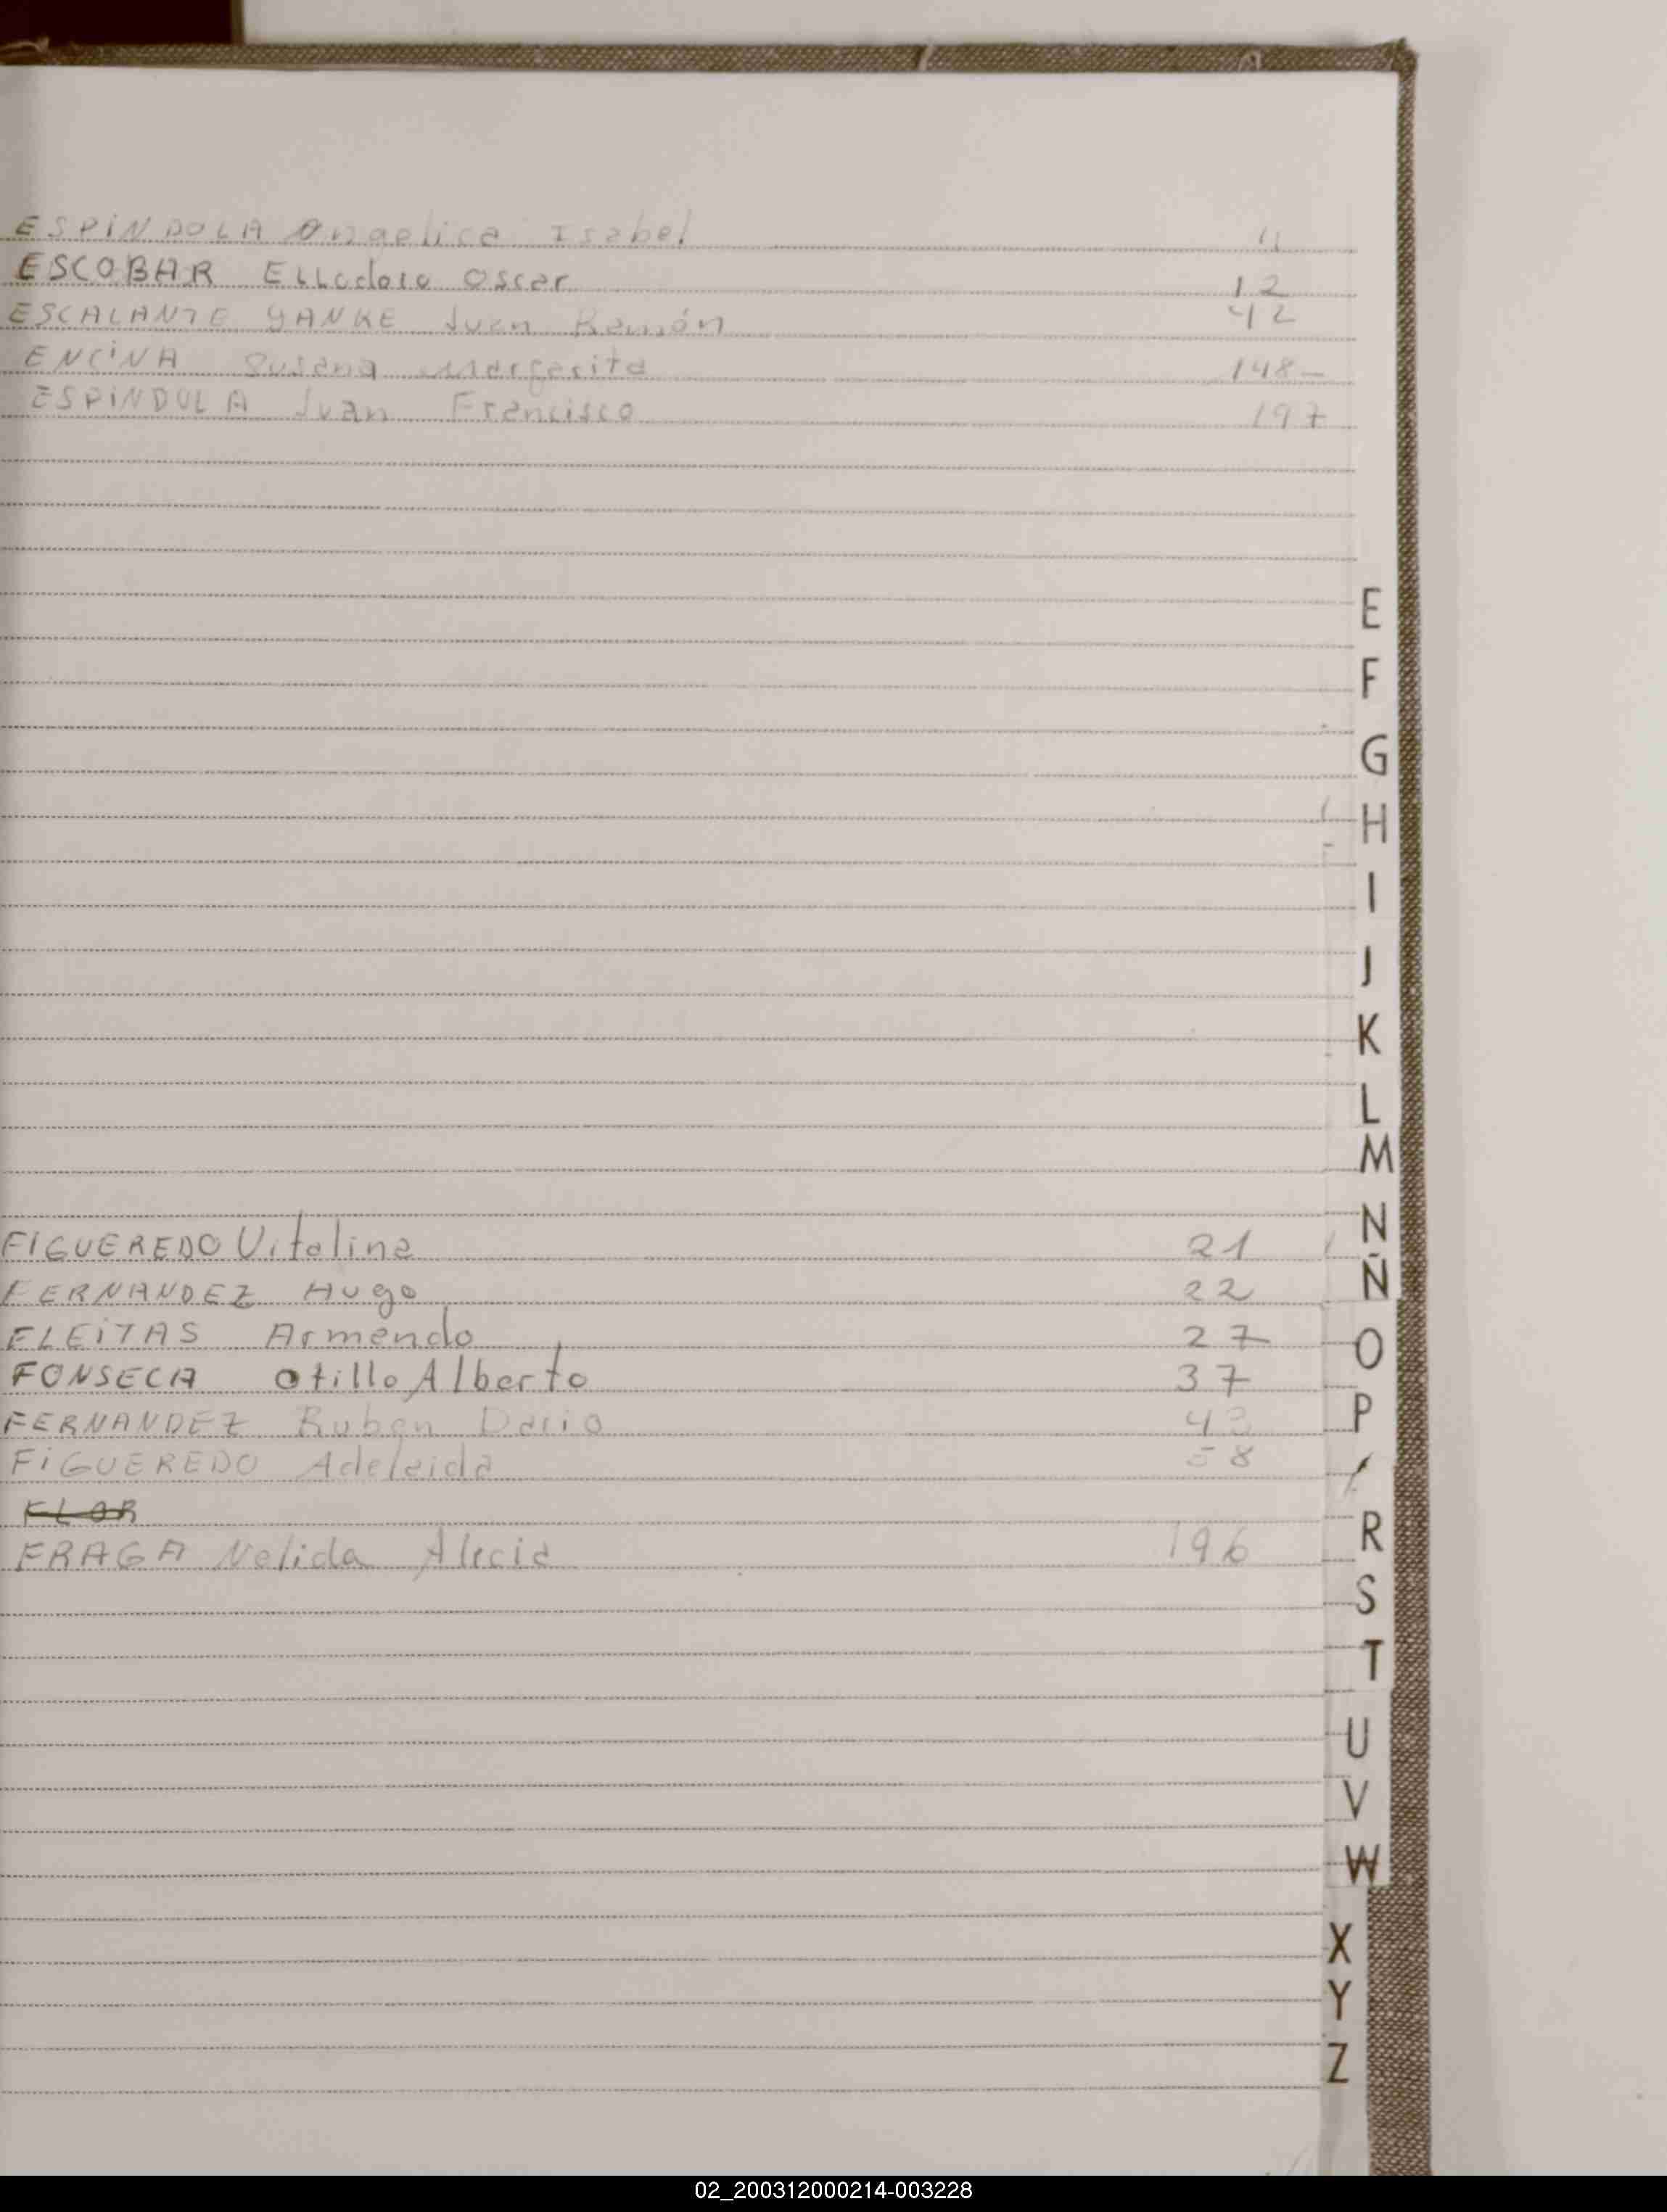 ESPINDOLA Angelica Isabel 11
ESCOBAR Eliodoro Oscar 12
ESCALANTE YANKE Juan Ramón 42
ENCINA Susana Margarita 148
ESPINDOLA Juan Francisco 197
E
F
G
H
I
J
K
L
M
N
FIGUEREDO Vitalina 21
FERNANDEZ Hugo 22
Ñ
FLEITAS Armando 27
O
FONSECA Otillo Alberto 37
P
FERNANDEZ Ruben Dario 43
FIGUEREDO Adelaida 58
FLOR
R
FRAGA Nelida Alicia 196
S
T
U
V
W
X
Y
Z
02_200312000214-003228